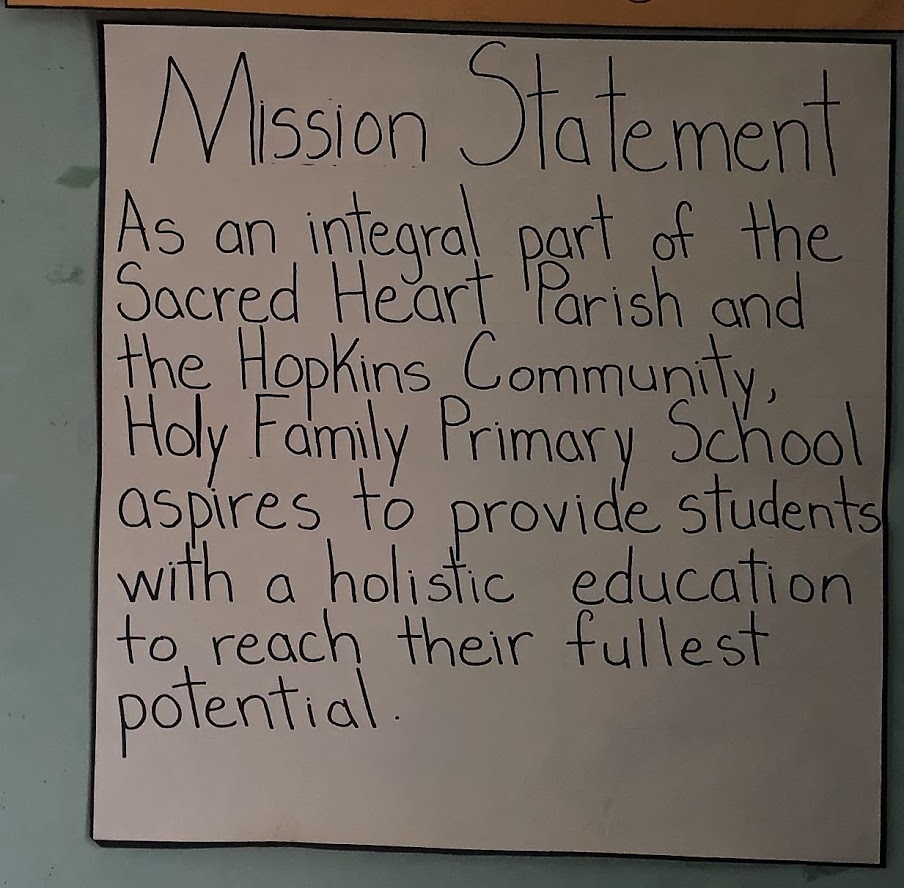 Mission Statement
As an integral part of the
Sacred Heart Parish and
the Hopkins Community,
Holy Family Primary School
aspires to provide students
with a holistic education
to reach their fullest
potential.